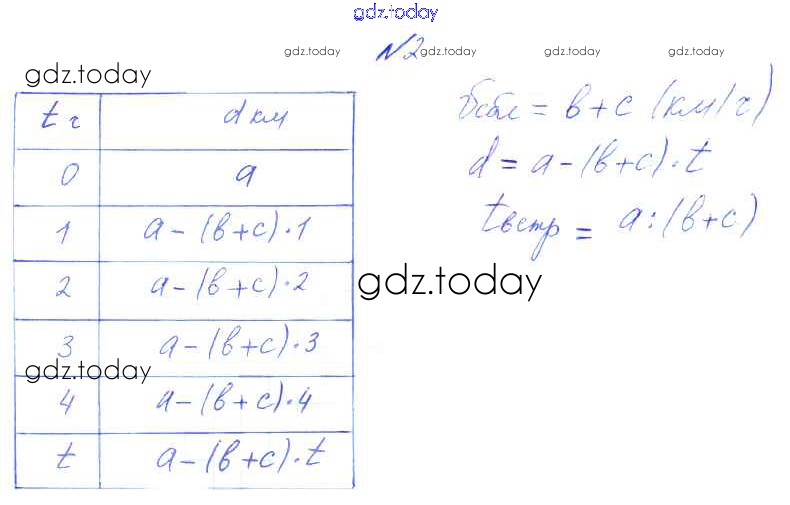 gdz.today
№2
gdz.today gdz.today gdz.today gdz.today
gdz.today
t ч d км
0 a
1 a-(в+c)·1
2 a-(в+c)·2
3 a-(в+c)·3
4 a-(в+c)·4
t a-(в+c)·t
vсбл = в+c (км/ч)
d = a-(в+c)·t
tвстр = a:(в+c)
gdz.today
gdz.today